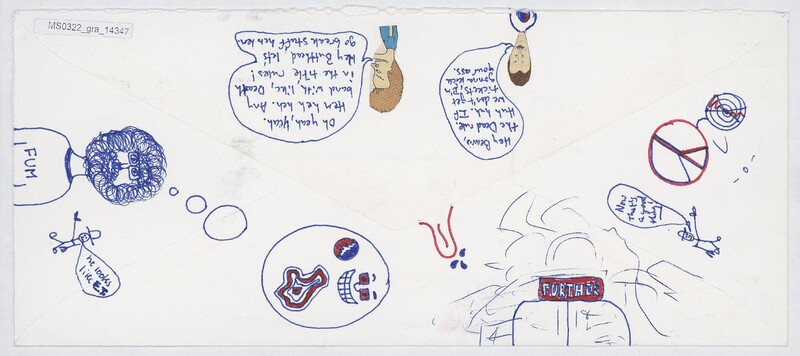 MS0322_gra_14347
Oh yeah, yeah.
Heh heh heh. Any
band with, like, Death
in the title rules!
Hey Butthead lets
go break stuff heh heh.
Hey Beavis,
the Dead rule.
Huh huh. If
we don't get
tickets, I'm
gonna kick
your ass.
FUM
he looks
like
Now
that's
a
FURTHUR